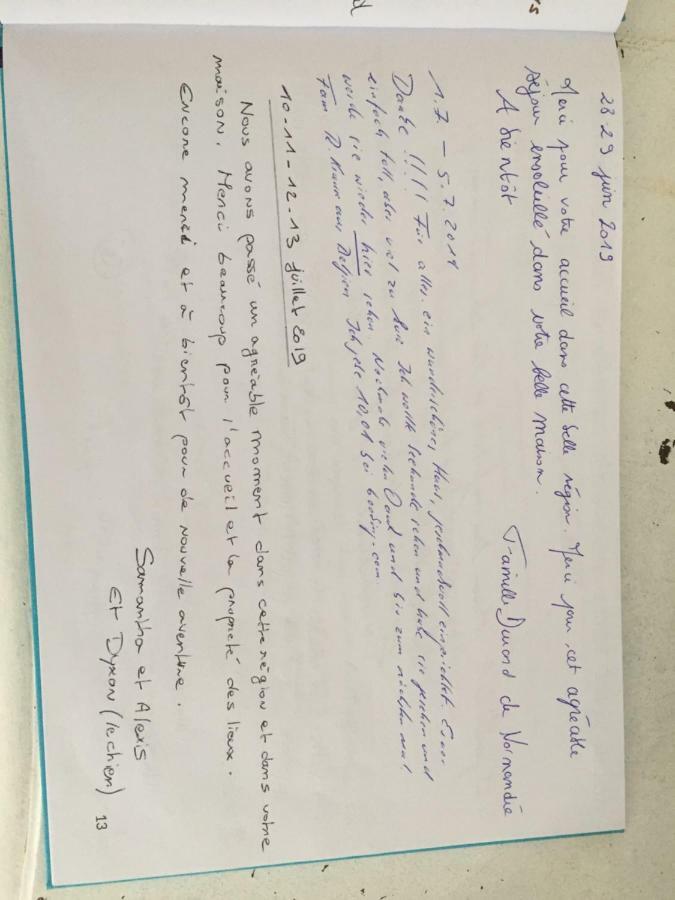 28 29 juin 2019
Merci pour votre accueil dans cette belle région. Merci pour cet agréable
séjour ensoleillé dans votre belle maison.
A bientôt
Famille Durand de Normandie
1.7 – 5.7.2019
Danke !!!! Für alles. ein wunderschönes Haus, geschmackvoll eingerichtet. Es war
einfach toll, aber viel zu kurz. Ich wollte Seehunde sehen und habe sie gesehen und
werde sie wieder hier sehen. Nochmals vielen Dank und bis zum nächsten mal
Fam. aus Belgien. Ich gebe 10,01 bei booking.com
10-11-12-13 juillet 2019
Nous avons passé un agréable moment dans cette région et dans votre
maison. Merci beaucoup pour l'accueil et la propreté des lieux.
Encore merci et à bientôt pour de nouvelle aventure.
Samantha et Alexis
Et Dyson (le chien)
13